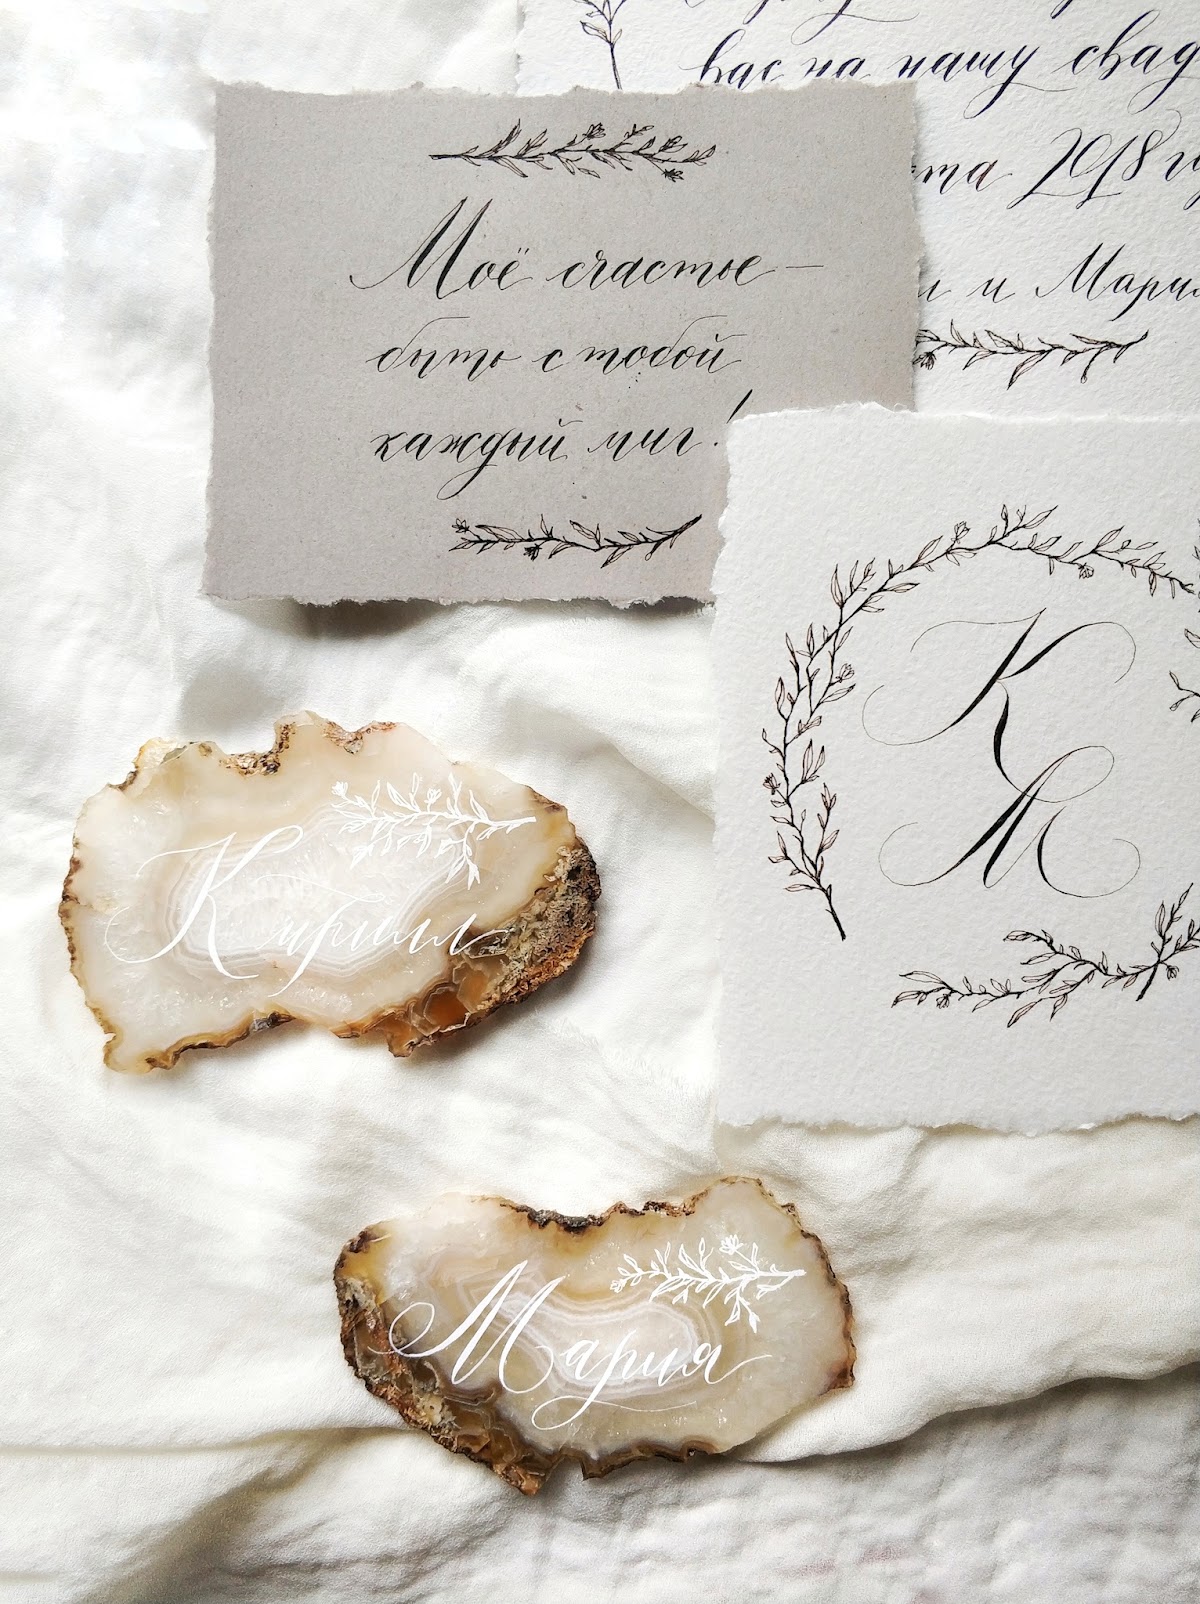 вас на нашу свад
та 2018 г
и и Мария
Моё счастье —
быть с тобой
каждый миг!
К
М
Кирилл
Мария